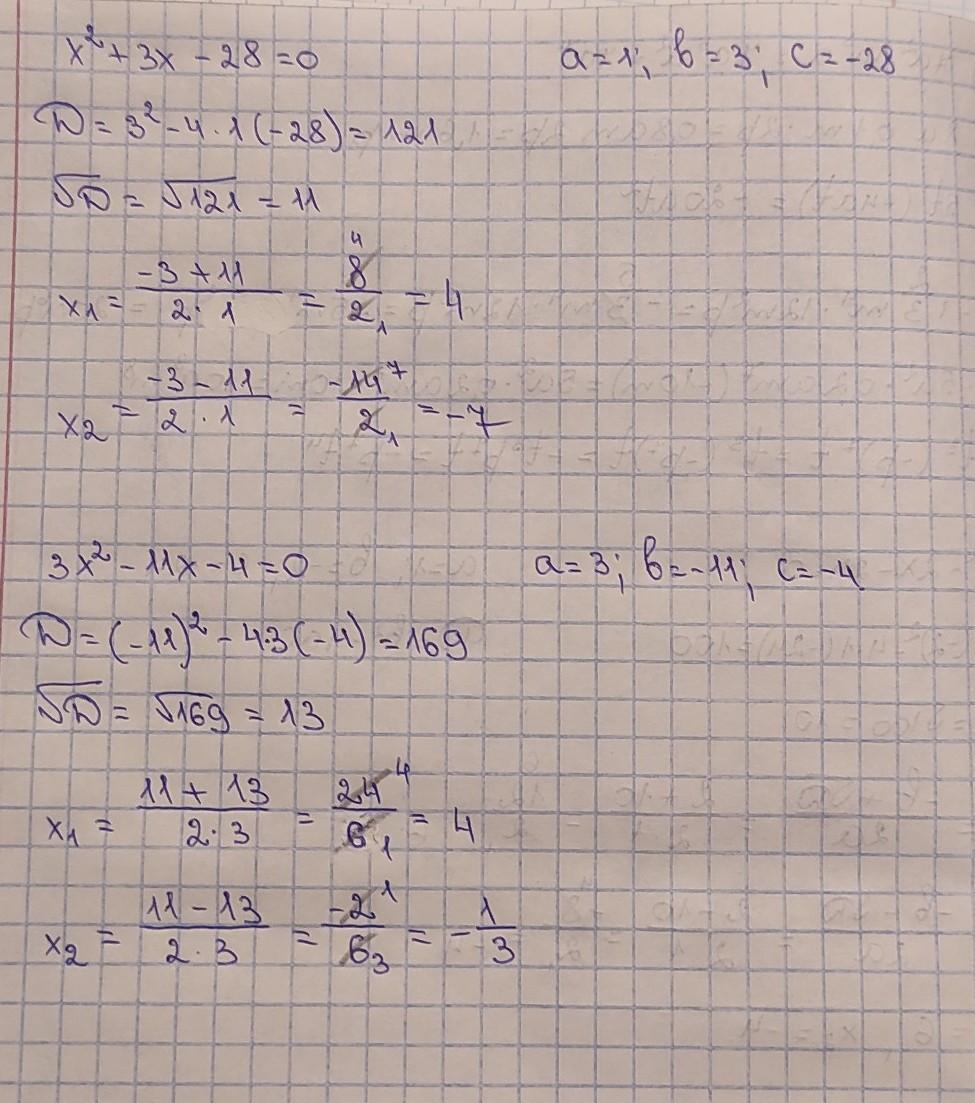 x² + 3x - 28 = 0    a = 1; b = 3; c = -28
D = 3² - 4 · 1 (-28) = 121
√D = √121 = 11
x₁ = (-3 + 11)/(2 · 1) = 8⁴/2₁ = 4
x₂ = (-3 - 11)/(2 · 1) = -14⁷/2₁ = -7
3x² - 11x - 4 = 0    a = 3; b = -11; c = -4
D = (-11)² - 4·3 (-4) = 169
√D = √169 = 13
x₁ = (11 + 13)/(2 · 3) = 24⁴/6₁ = 4
x₂ = (11 - 13)/(2 · 3) = -2¹/6₃ = -1/3